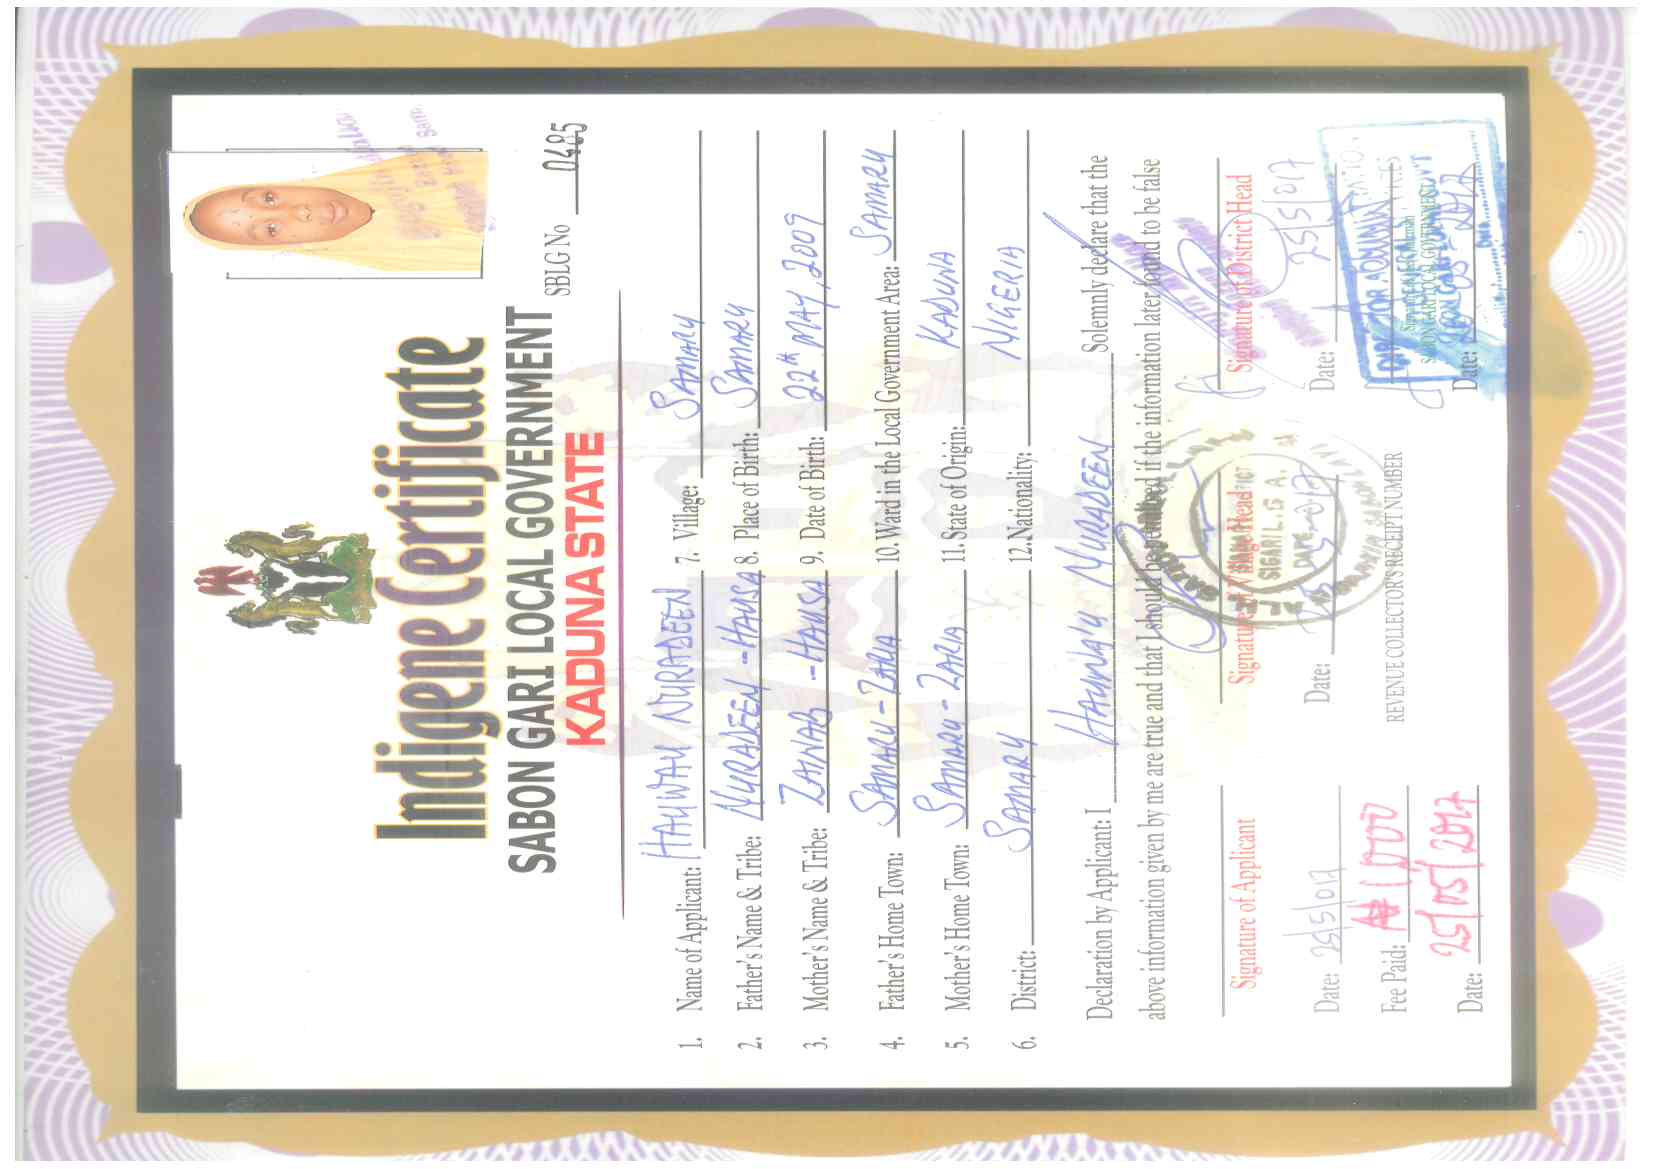 Indigene Certificate
SABON GARI LOCAL GOVERNMENT
KADUNA STATE
SBLG No 0485
1. Name of Applicant: HAUWAU NURADEEN 7. Village: SAMARU
2. Father's Name & Tribe: NURADEEN - HAUSA 8. Place of Birth: SAMARU
3. Mother's Name & Tribe: ZAINAB - HAUSA 9. Date of Birth: 22th MAY, 2009
4. Father's Home Town: SAMARU - ZARIA 10. Ward in the Local Government Area: SAMARU
5. Mother's Home Town: SAMARU - ZARIA 11. State of Origin: KADUNA
6. District: SAMARU 12. Nationality: NIGERIA
Declaration by Applicant: I HAUWA'U NURADEEN Solemnly declare that the
above information given by me are true and that I should be penalized if the information later found to be false
Signature of Applicant Signature of Village Head Signature of District Head
Date: 25/5/017 Date: Date: 25/5/017
S/GARI L.G.A.
DATE
Fee Paid: ₦1,000 REVENUE COLLECTOR'S RECEIPT NUMBER
SABON GARI LOCAL GOVERNMENT
Date: 25/05/2017 Date: